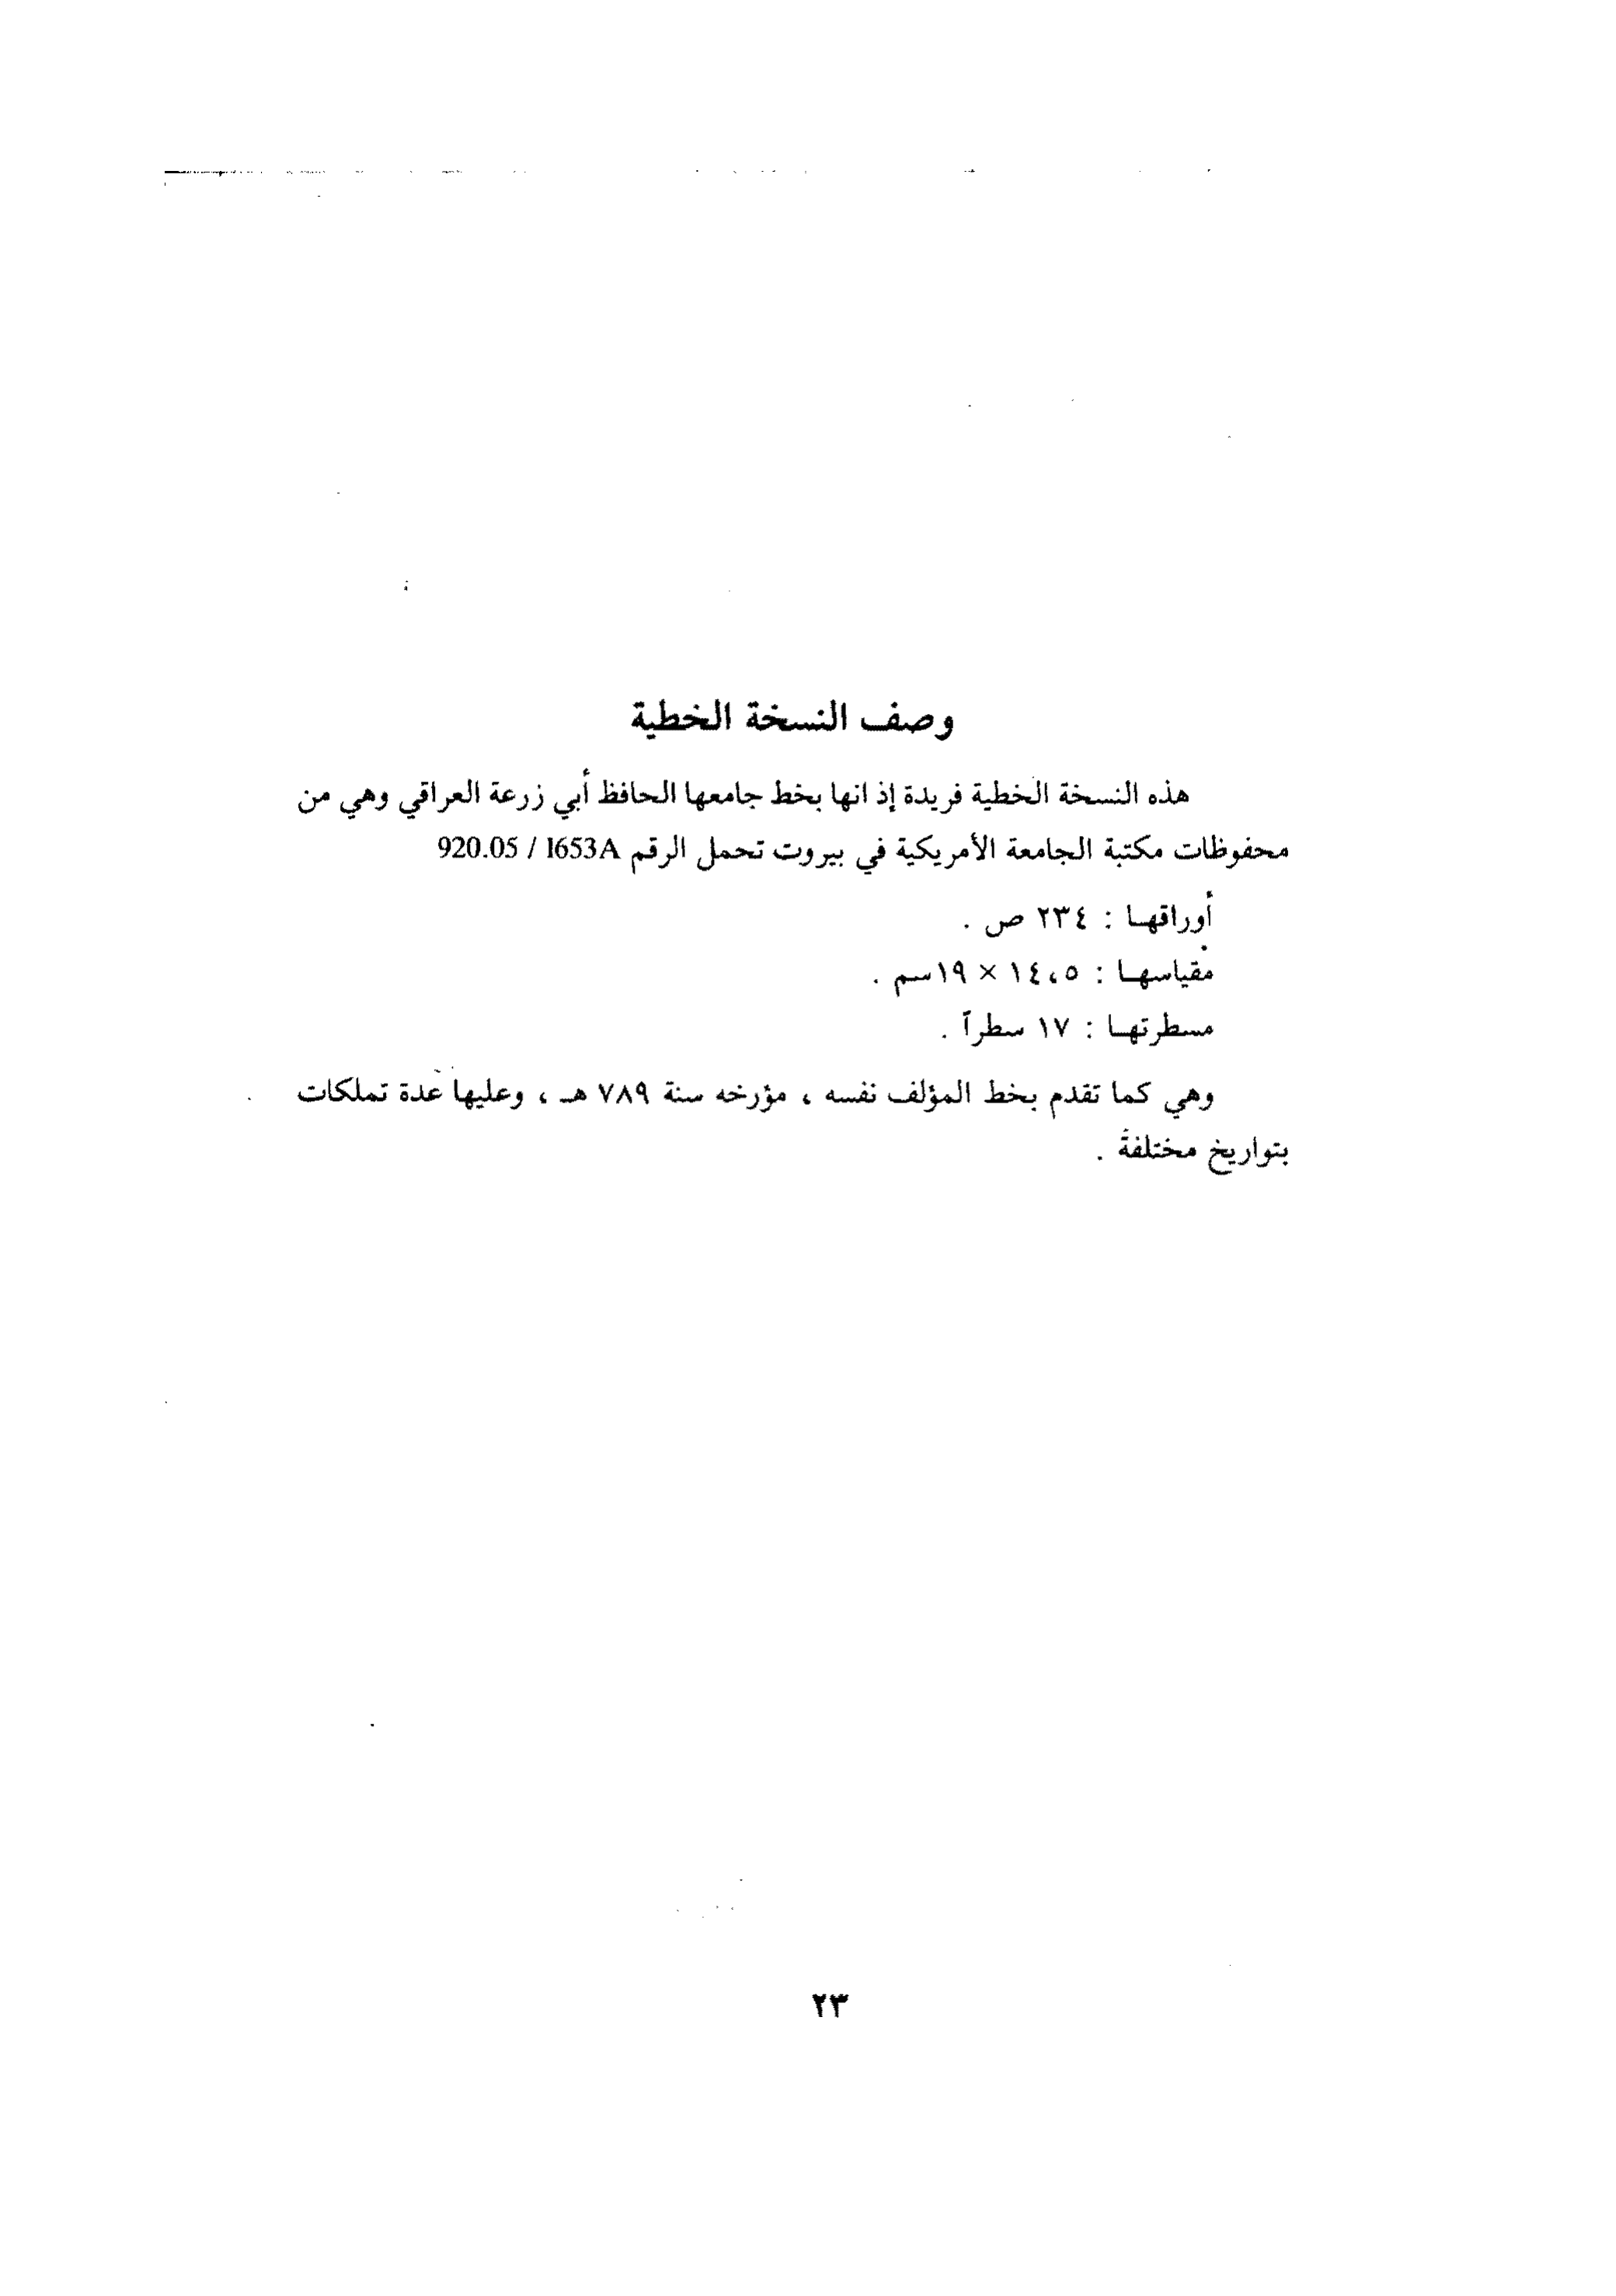 وصف النسخة الخطية
هذه النسخة الخطية فريدة إذ انها بخط جامعها الحافظ أبي زرعة العراقي وهي من
محفوظات مكتبة الجامعة الأمريكية في بيروت تحمل الرقم 920.05 / I653A
أوراقها : ٢٣٤ ص .
مقياسها : ١٤،٥ × ١٩سم .
مسطرتها : ١٧ سطراً .
وهي كما تقدم بخط المؤلف نفسه ، مؤرخه سنة ٧٨٩ هـ ، وعليها عدة تملكات
بتواريخ مختلفة .
٢٣